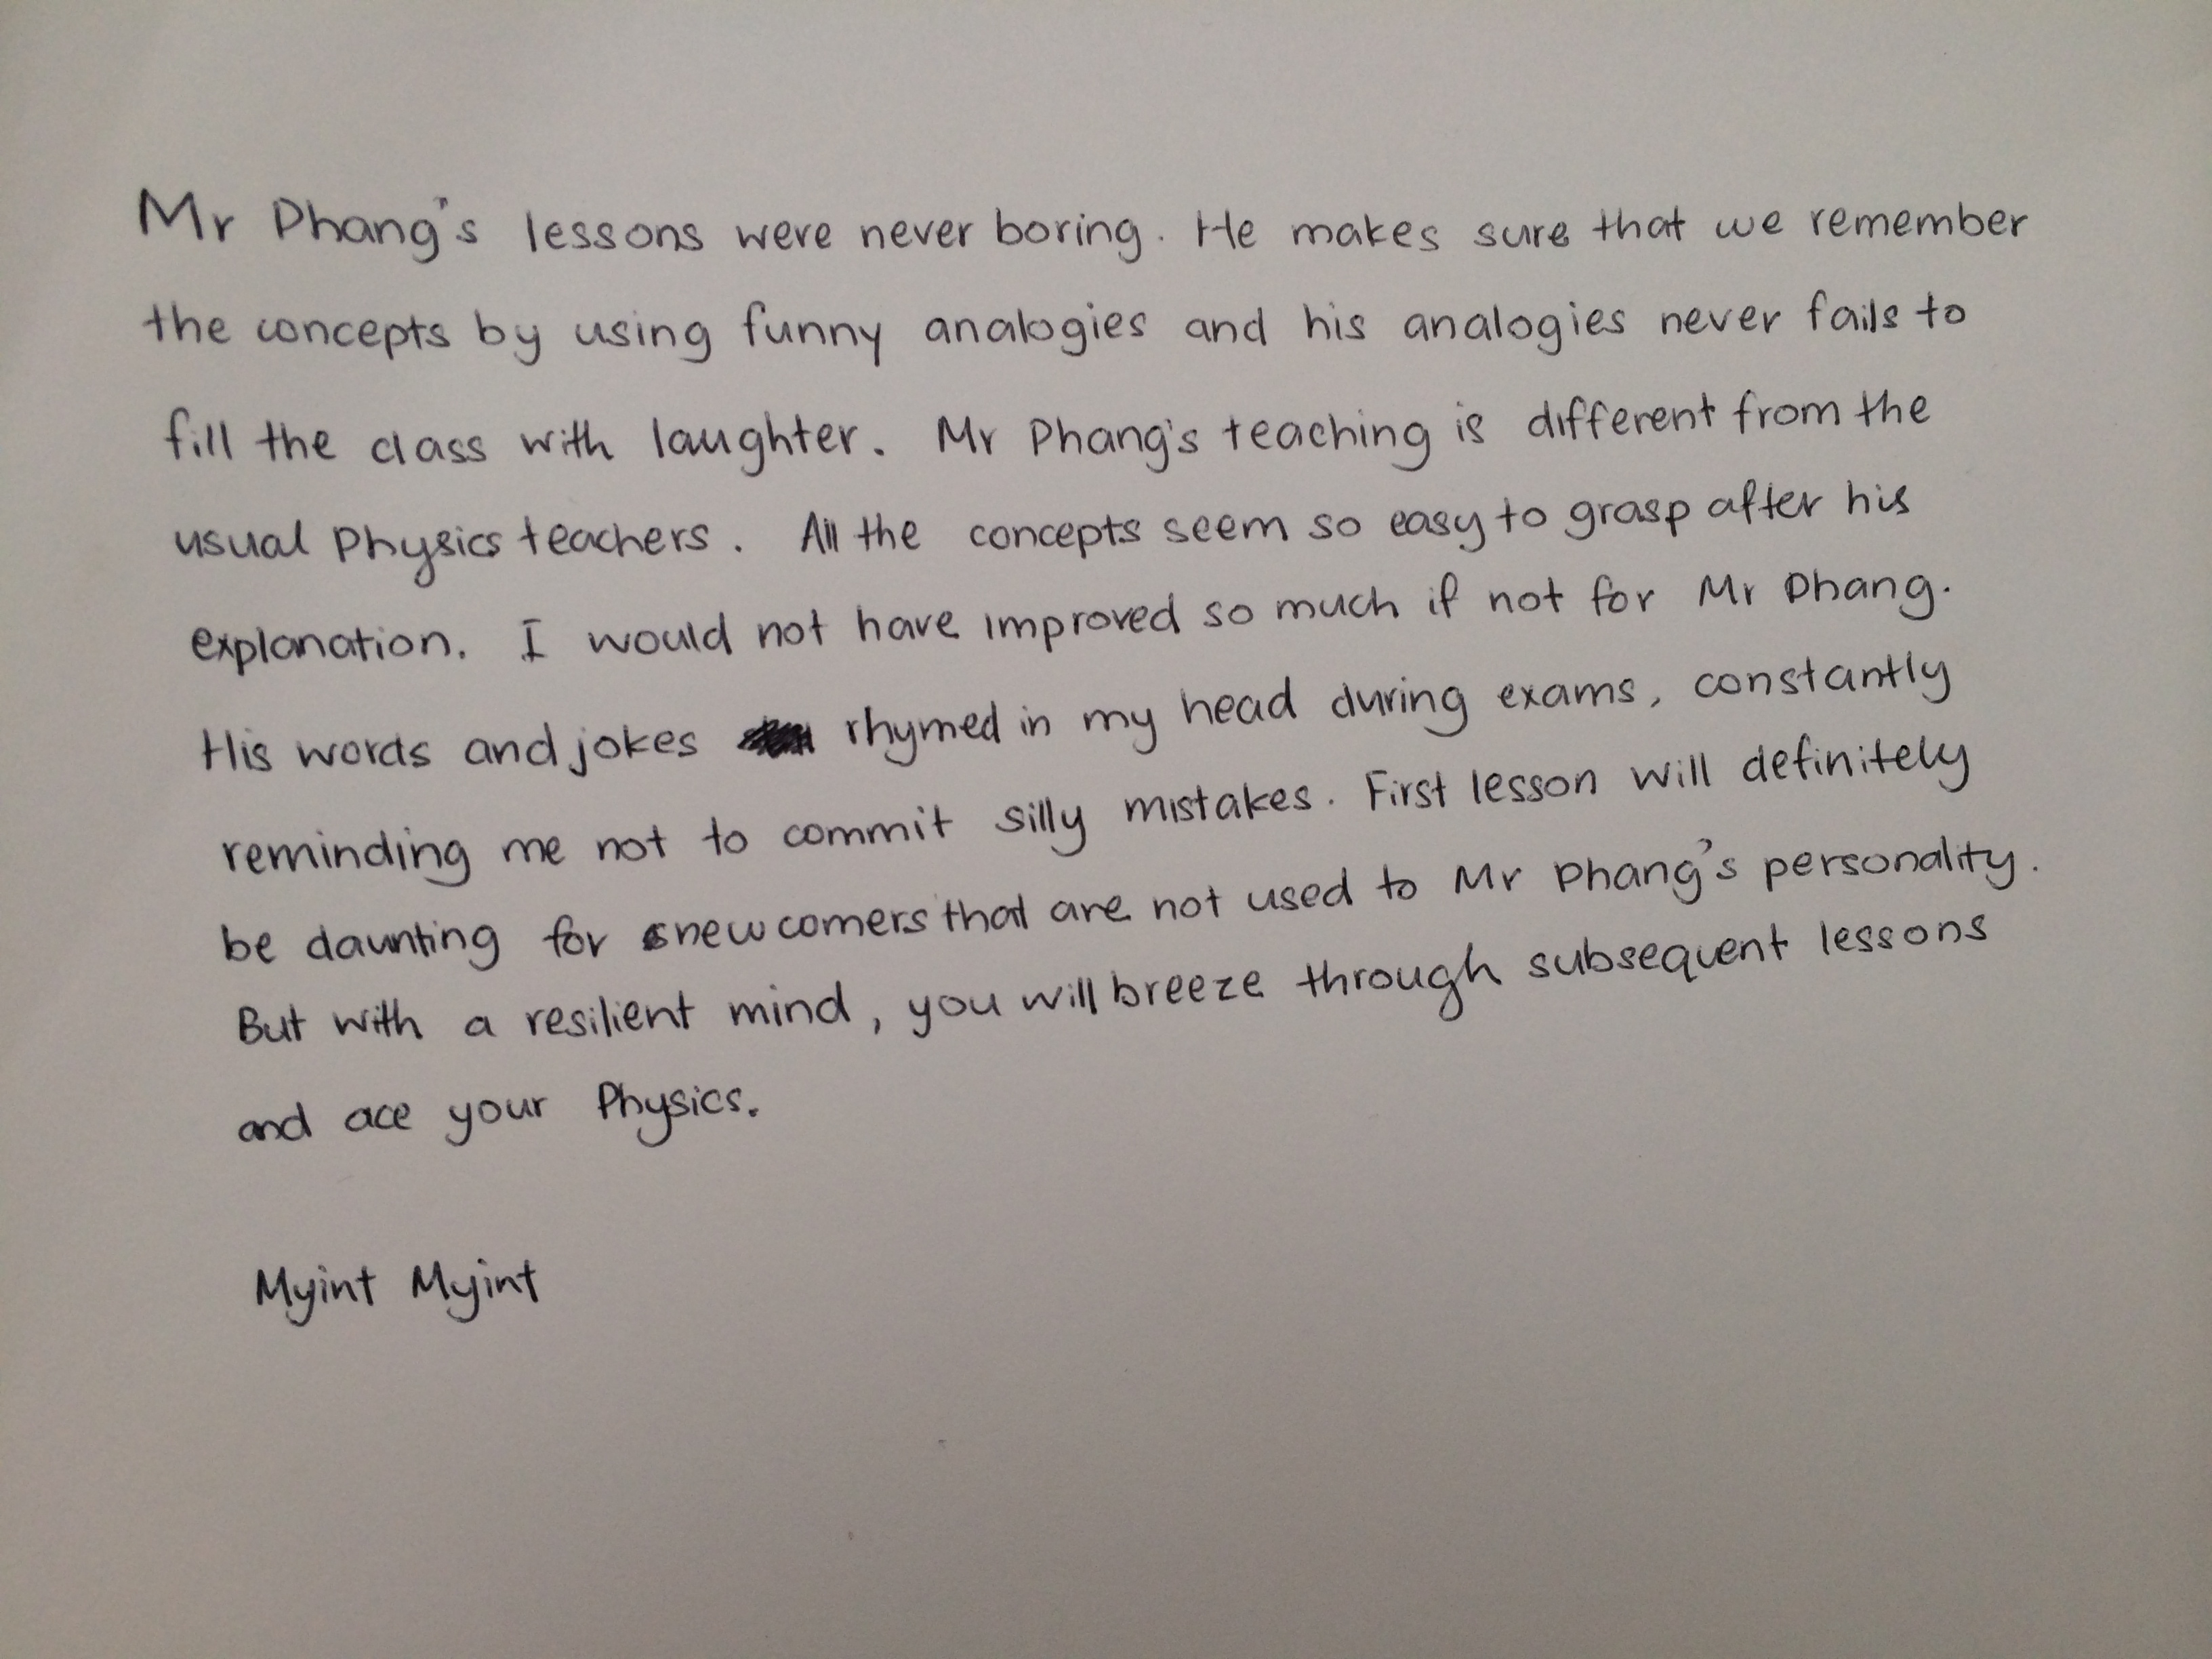 Mr Phang's lessons were never boring. He makes sure that we remember
the concepts by using funny analogies and his analogies never fails to
fill the class with laughter. Mr Phang's teaching is different from the
usual Physics teachers. All the concepts seem so easy to grasp after his
explanation. I would not have improved so much if not for Mr Phang.
His words and jokes rhymed in my head during exams, constantly
reminding me not to commit silly mistakes. First lesson will definitely
be daunting for newcomers that are not used to Mr Phang's personality.
But with a resilient mind, you will breeze through subsequent lessons
and ace your Physics.
Myint Myint